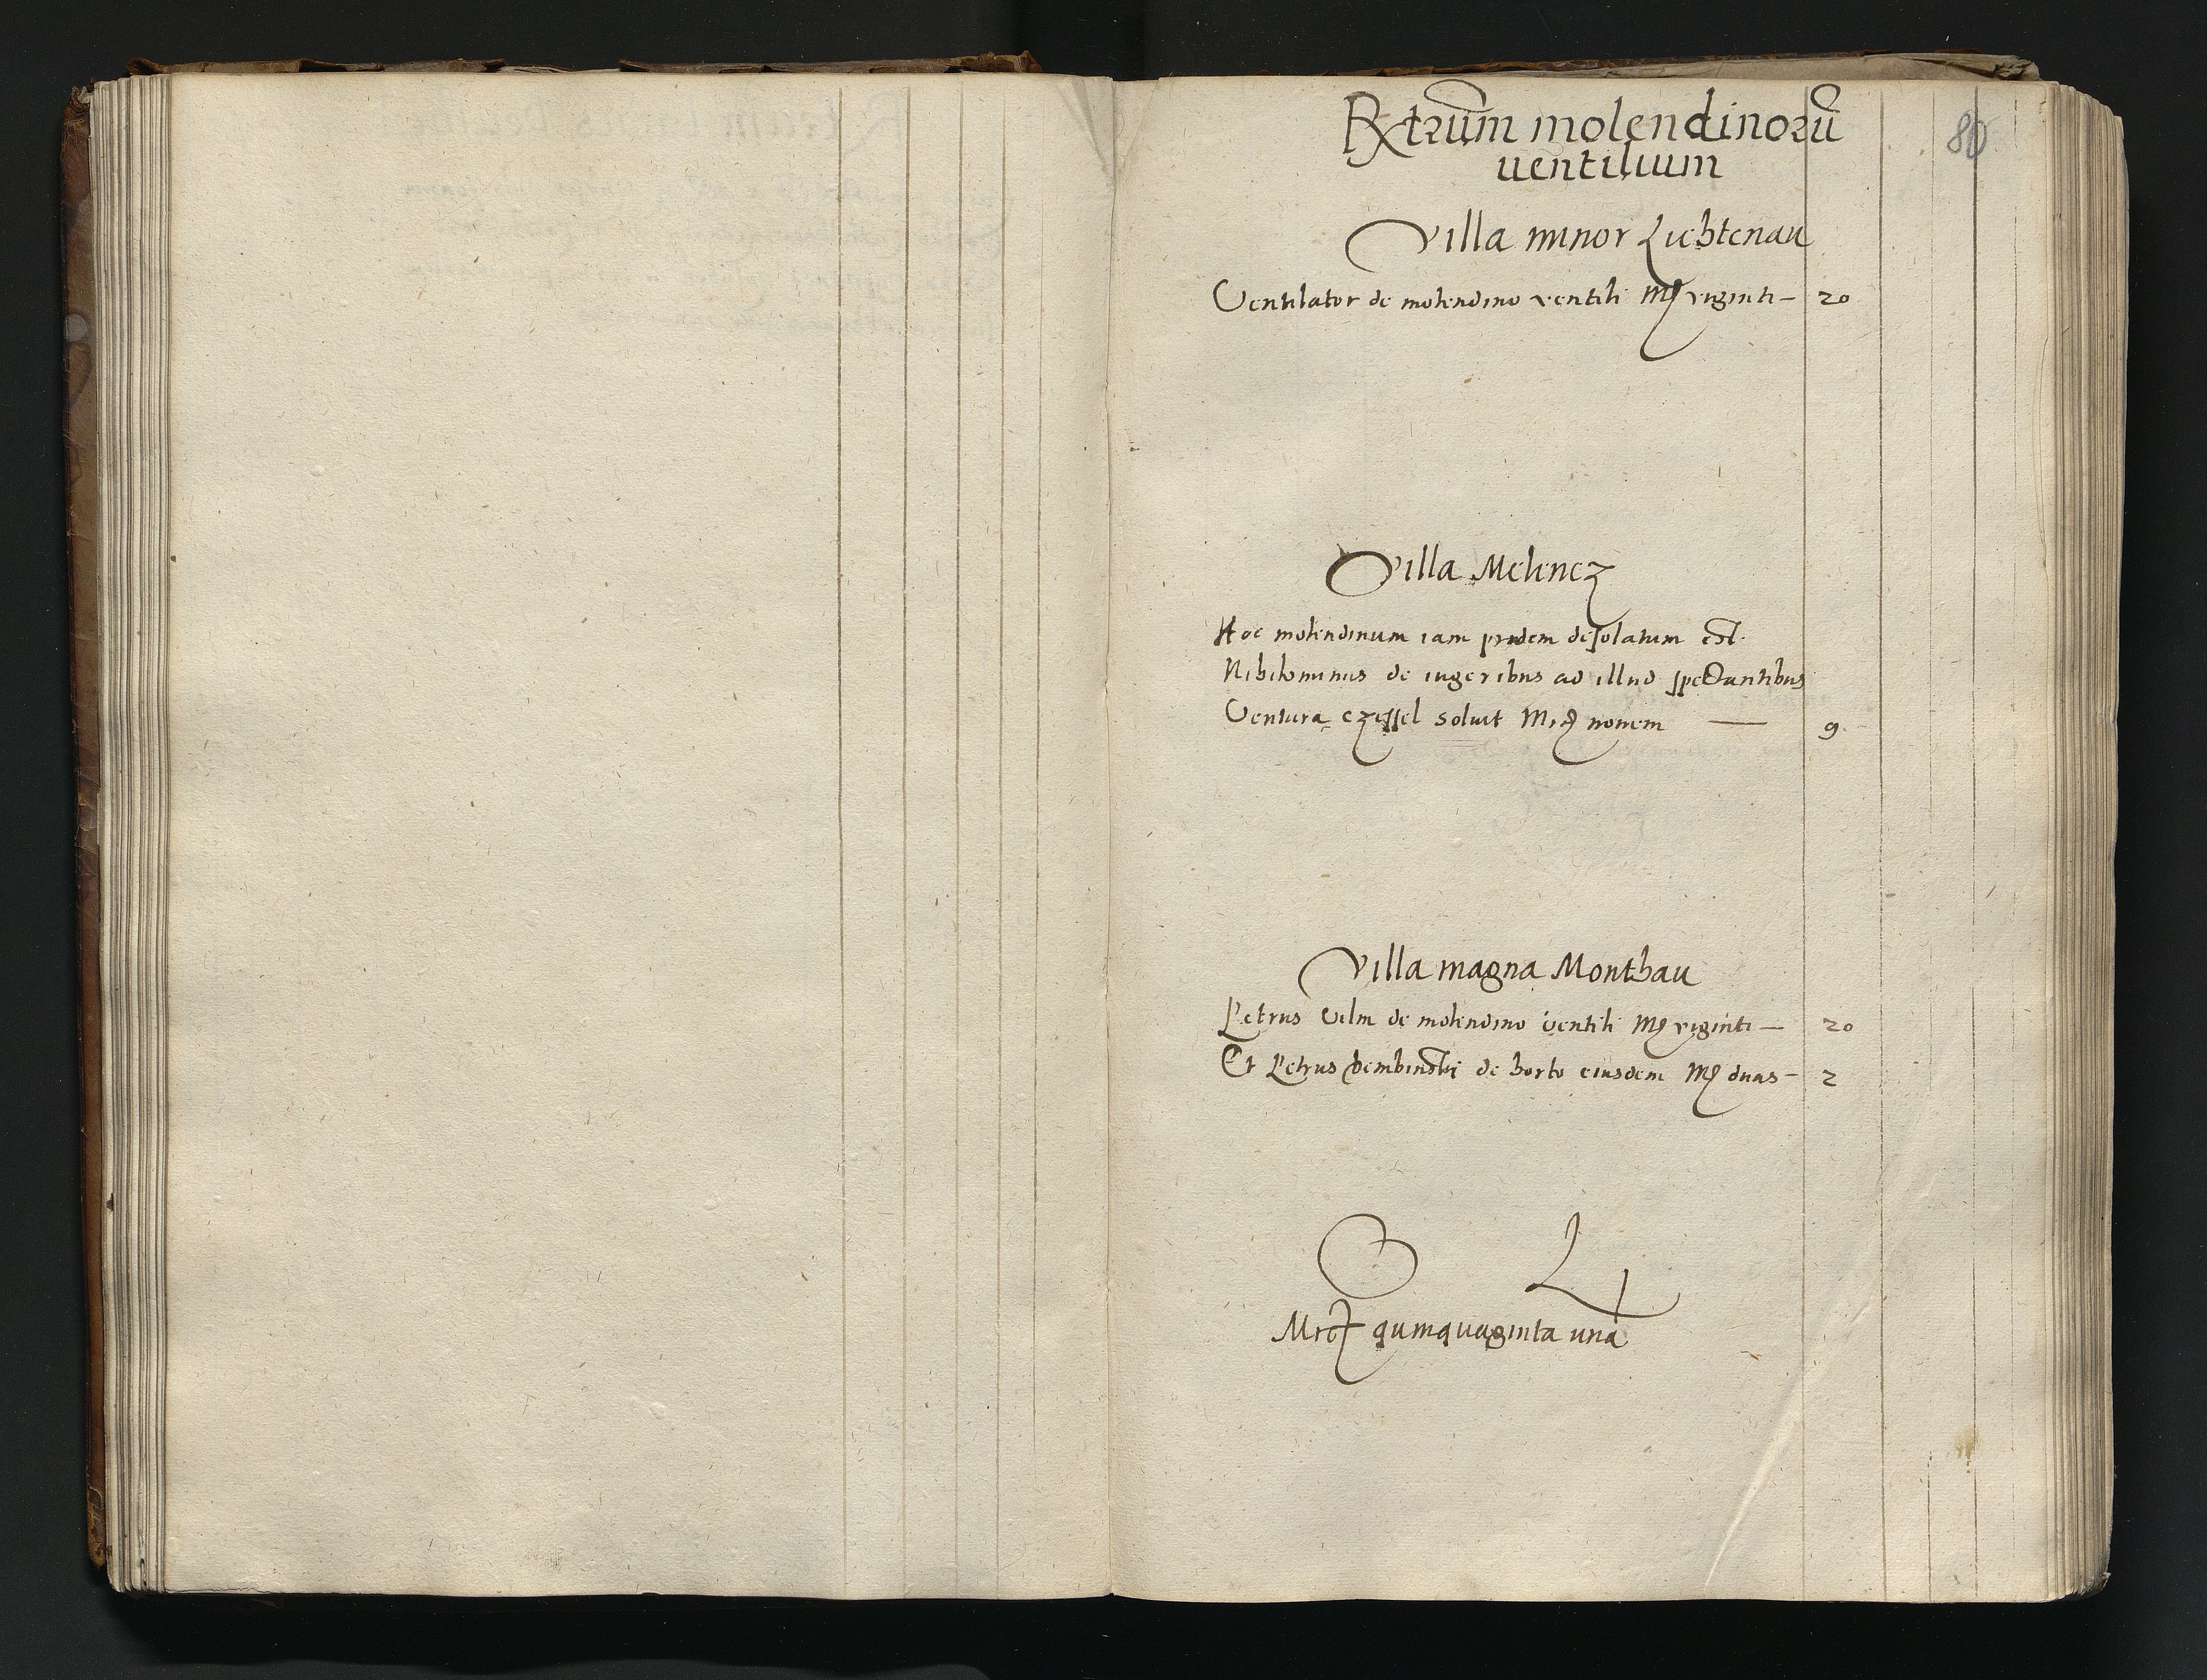 80
Rxtrum molendinorū
uentilium
Villa minor Lichtenau
Ventilator de molendino ventili Mrc viginti — 20
Villa Melenez
Hoc molendinum iam pridem desolatum est.
Nihilominus de iugeribus ad illud spectantibus
Ventura czessel soluit Mrc novem — 9
Villa magna Monthau
Petrus Vilm de molendino ventili Mrc viginti — 20
Et Petrus Dembinski de horto eiusdem Mrc duas — 2
Mrc quinquaginta una